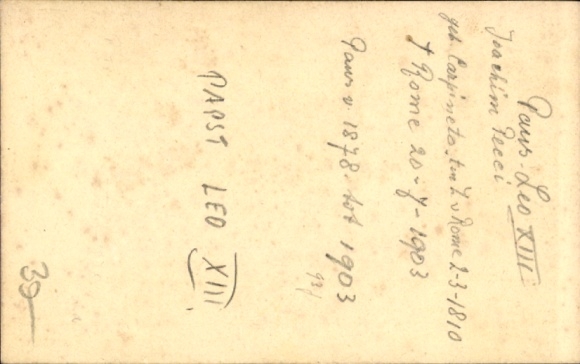 Paus Leo XIII
Joachim Pecci
geb Carpineto, ten Z v Rome 2-3-1810
† Rome 20-7-1903
Paus v 1878 tot 1903
PAPST LEO XIII
39